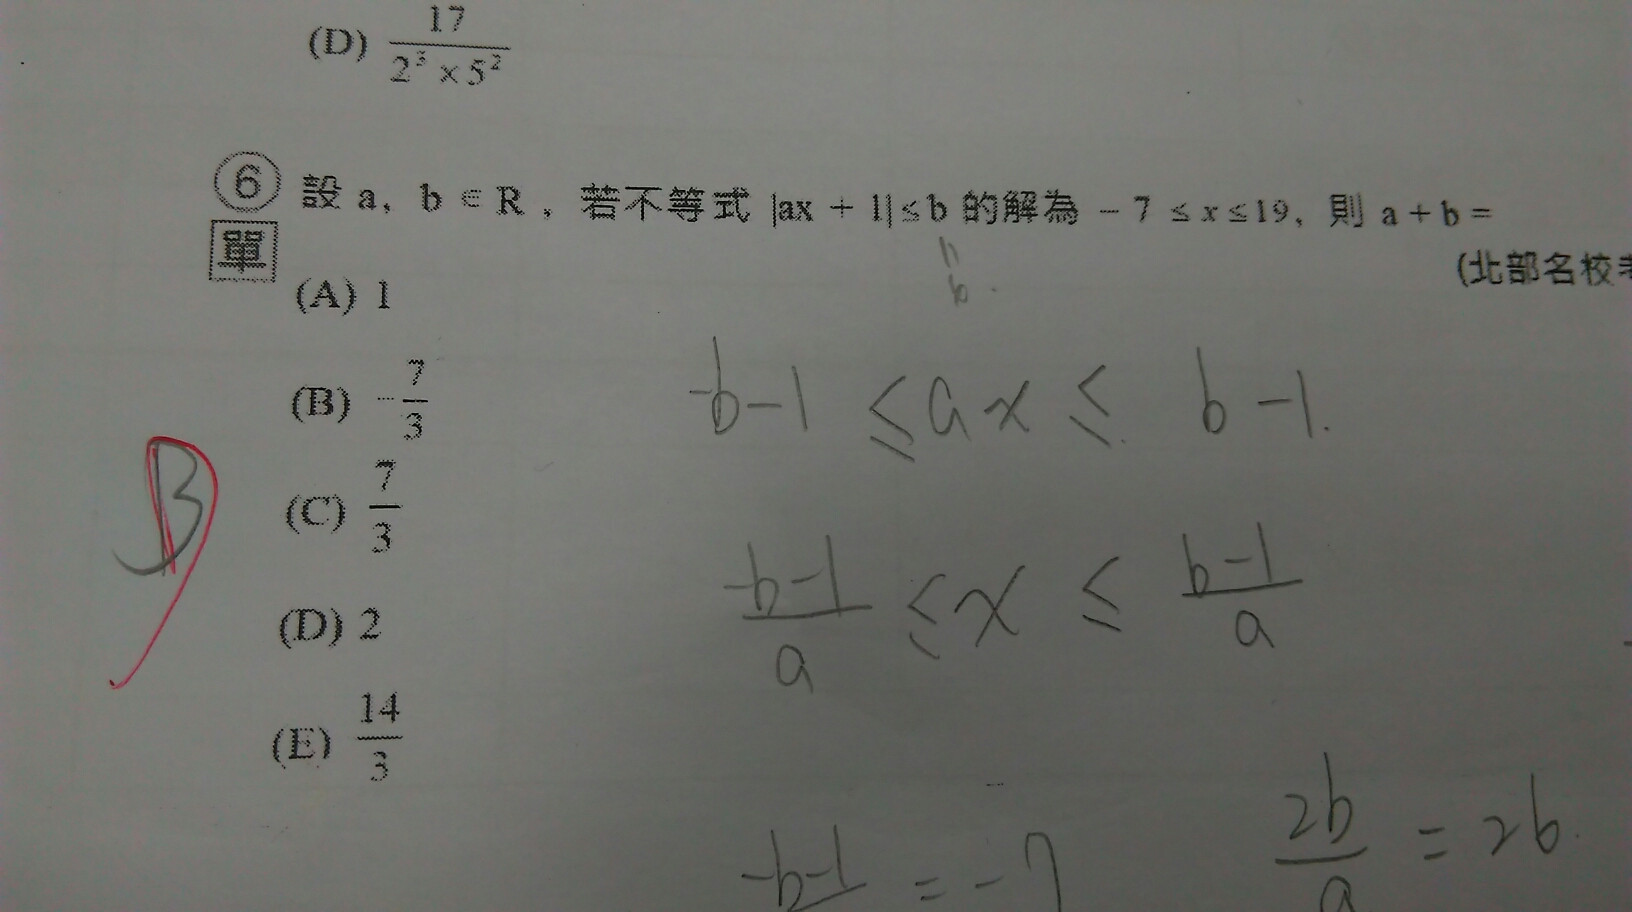 (D) 17/(2³ × 5²)
⑥ 設 a, b ∈ R , 若不等式 |ax + 1| ≤ b 的解為 − 7 ≤ x ≤ 19, 則 a + b =
單
(北部名校
(A) 1
(B) −7/3
(C) 7/3
(D) 2
(E) 14/3
B
-b-1 ≤ ax ≤ b-1.
(-b-1)/a ≤ x ≤ (b-1)/a
-b-1 = -7
2b/a = 26.